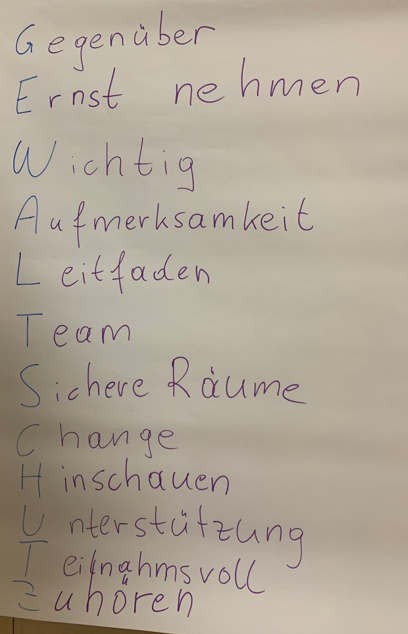 Gegenüber
Ernst nehmen
Wichtig
Aufmerksamkeit
Leitfaden
Team
Sichere Räume
Change
Hinschauen
Unterstützung
Teilnahmsvoll
Zuhören